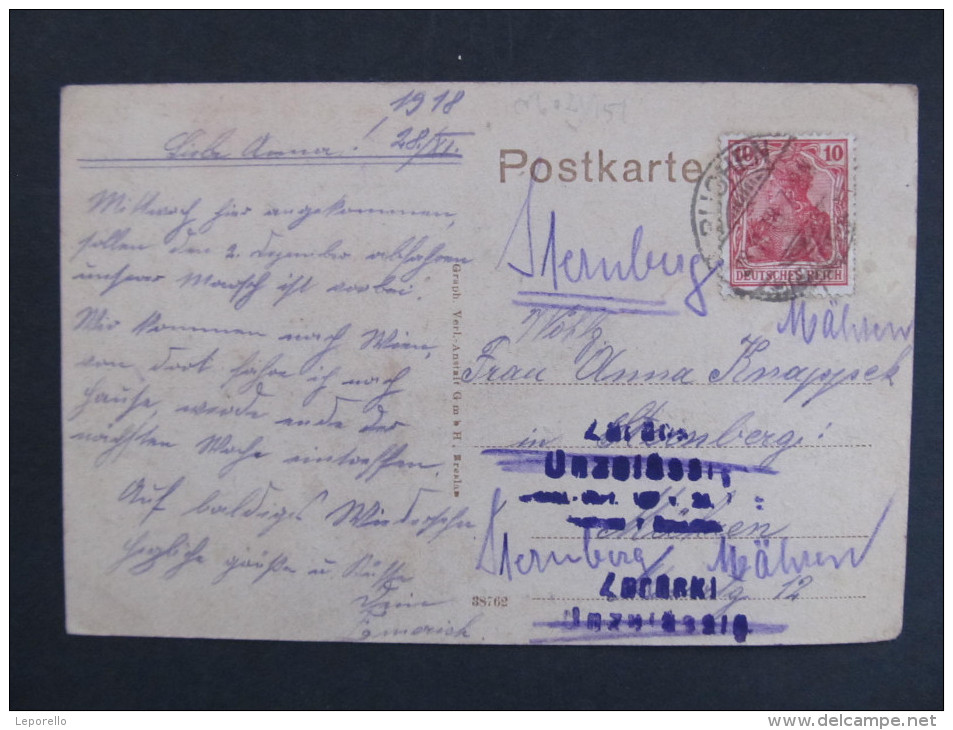 1918
28./XI.
Liebe Anna!
Mittwoch hier angekommen,
sollen den 2. Dezember abfahren
unser Marsch ist vorbei!
Wir kommen nach Wien,
von dort fahre ich nach
Hause, werde ende der
nächsten Woche eintreffen.
Auf baldiges Wiedersehn
herzliche grüße u. Küsse
Dein
Emerich
Graph. Verl.-Anstalt G m b H, Breslau
38762
Postkarte
10
DEUTSCHES REICH
Sternberg
Mähren
Frau Anna Knappek
in Sternberg!
Unzulässig
Mähren
Sternberg Mähren
Zurück!
12
Unzulässig
Leporello
www.delcampe.net